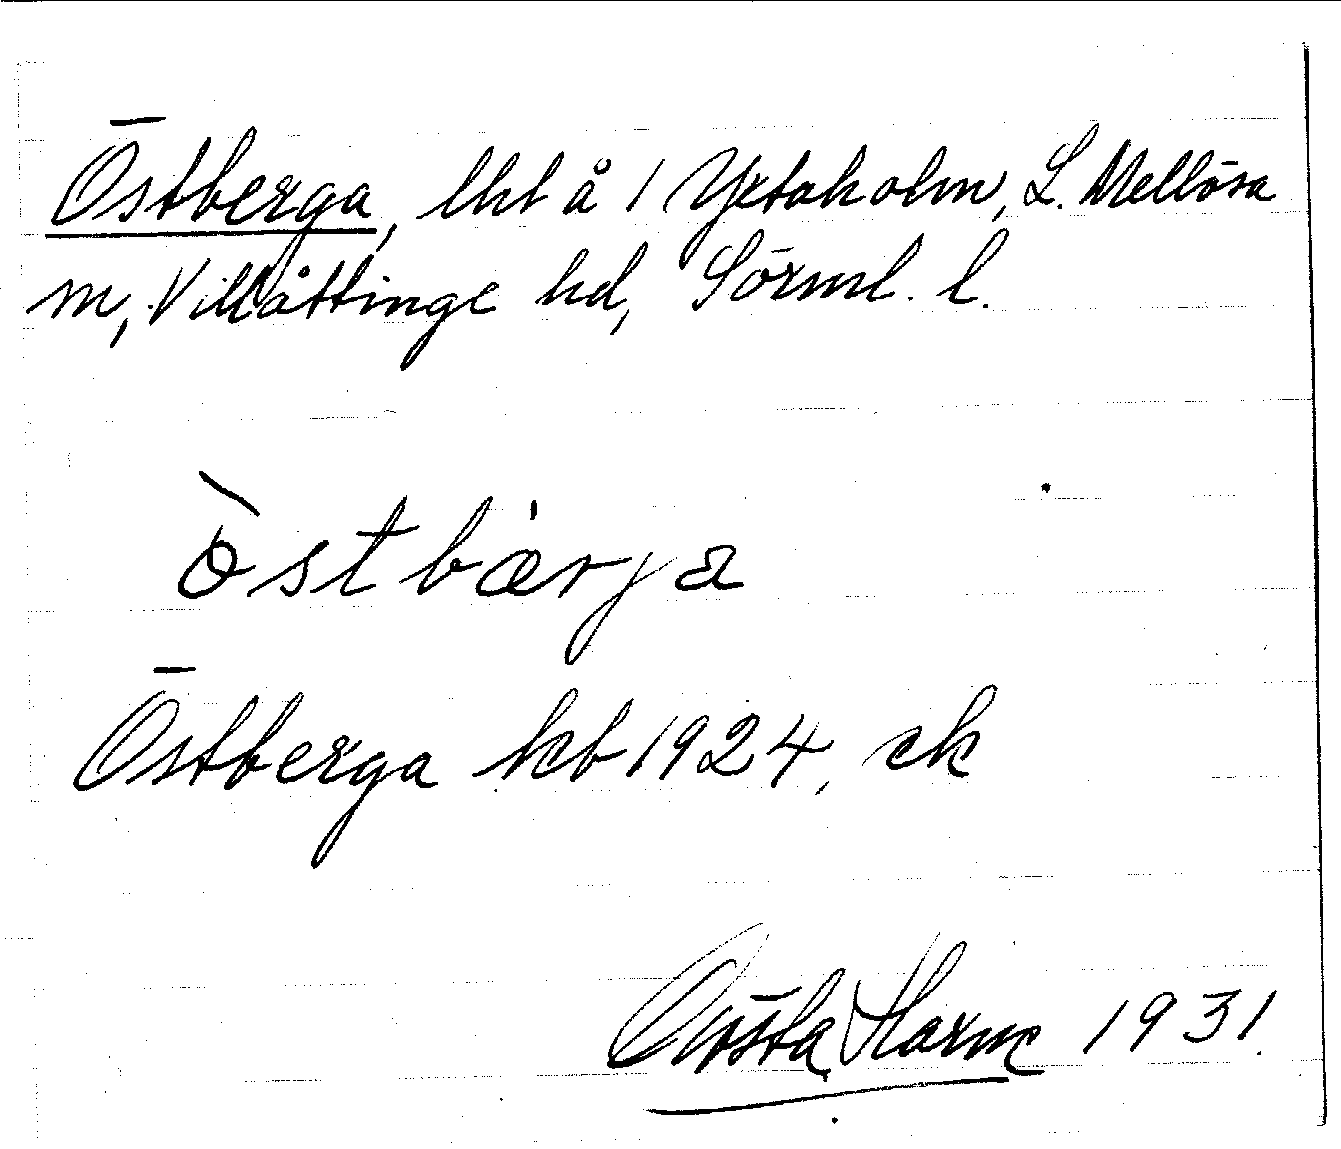 Östberga, lht å 1 Yxtaholm, L. Mellösa
m, Villåttinge hd, Sörml. l.
òstbær̍ja
Östberga kb 1924, ek
Gösta Harne 1931.